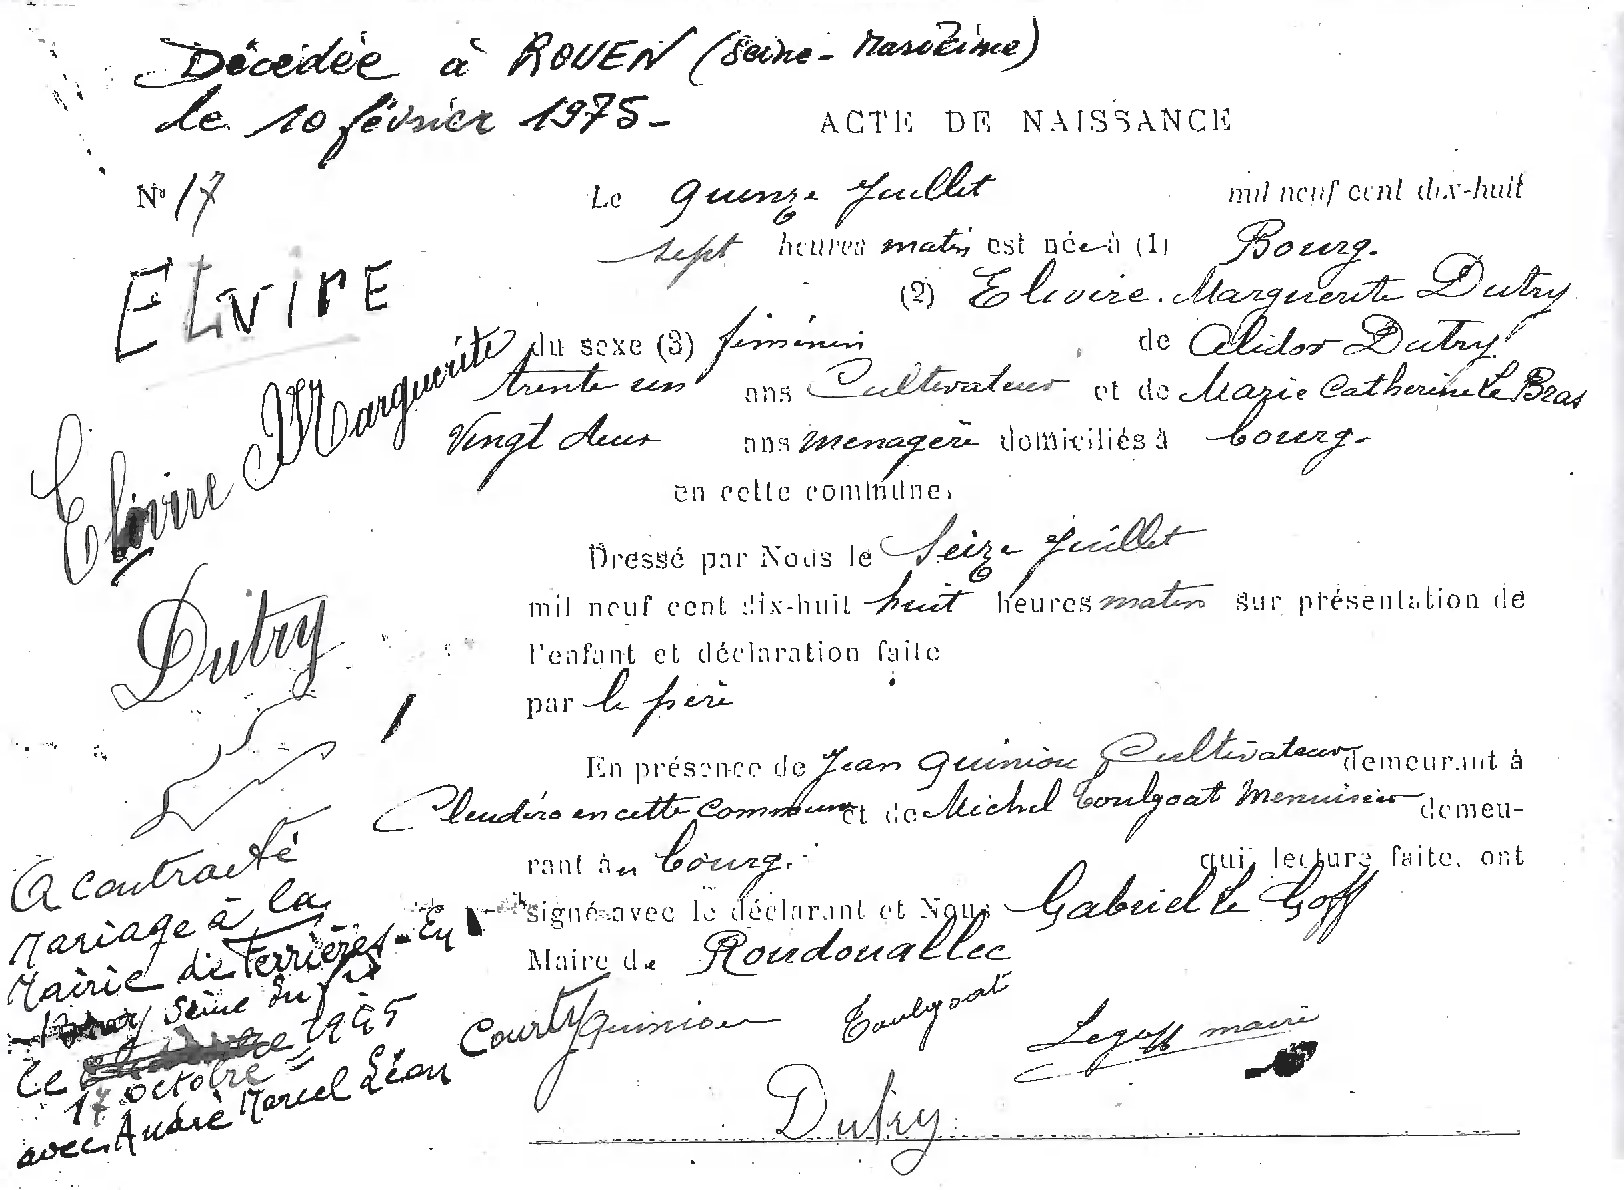 Décédée à ROUEN (Seine-Maritime)
le 10 février 1975-
ACTE DE NAISSANCE
N° 17
Le quinze Juillet mil neuf cent dix-huit
sept heures matin est née à (1) Bourg.
ELIVIRE
(2) Elivire. Marguerite Dutry
du sexe (3) féminin de Alidor Dutry
trente un ans Cultivateur et de Marie Catherine Le Bras
vingt deux ans menagère domiciliés à bourg-
en cette commune.
Elivire Marguerite
Dutry
Dressé par Nous le Seize Juillet
mil neuf cent dix-huit huit heures matin sur présentation de
l'enfant et déclaration faite
par le père
En présence de Jean Quiniou Cultivateur demeurant à
en cette commune et de Michel Toulgoat Menuisier demeu-
rant au bourg. qui, lecture faite, ont
signé avec le déclarant et Nous Gabriel Le Goff
Maire de Roudouallec
Quiniou Toulgoat Legoff maire
Dutry
A contracté
Mariage à la
Mairie de Ferrières-En
Bray Seine Inf
le octobre 1945
17
avec André Marcel Léon Courty